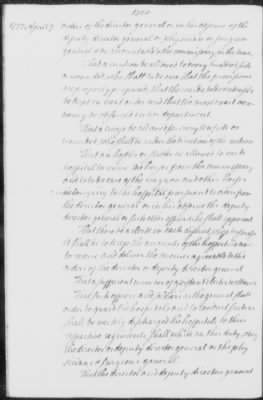 1300
1777 April 7
orders of the director general or in his absence of the
deputy director general or physician or surgeon
general who shall countersign the commissary in the same.
That a matron be allowed to every hundred sick
or wounded, who shall take care that the provisions
are properly prepared; that the wards beds & utensils
be kept in neat order and that the most exact oeco-
nomy be observed in her department.
That a nurse be allowed for every ten sick or
wounded, who shall be under the direction of the matron.
That an hostler or stabler be allowed to each
hospital to receive the horses from the commissary
and to take care of the waggon and other horses
belonging to the hospital pursuant to orders from
the director general or in his absence the deputy
director general or such other officer as he shall appoint
That there be a clerk in each district whose business
it shall be to keep the accounts of the hospitals and
to receive and deliver the monies agreeable to the
orders of the director or deputy director general
That a sufficient number of assistant clerks be allowed
That such officers and soldiers as the general shall
order to guard the hospitals and to conduct such as
shall be weekly discharged the hospital, to their
respective regiments, shall while on this duty, obey
the director or deputy director general or the phy-
sicians & surgeons general.
That the director and deputy directors general